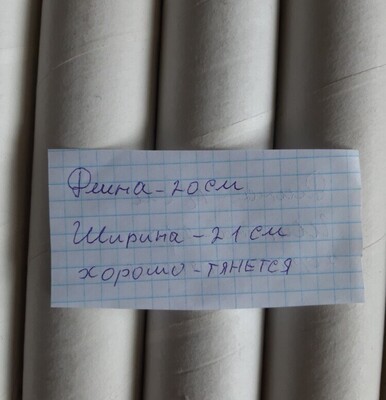 Длина - 20 см
Ширина - 21 см
хорошо - тянется